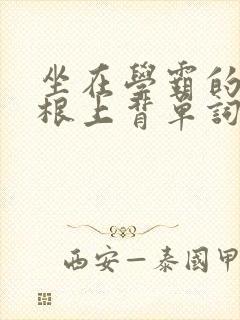 坐在學霸的
根上背單詞
西安—泰國甲